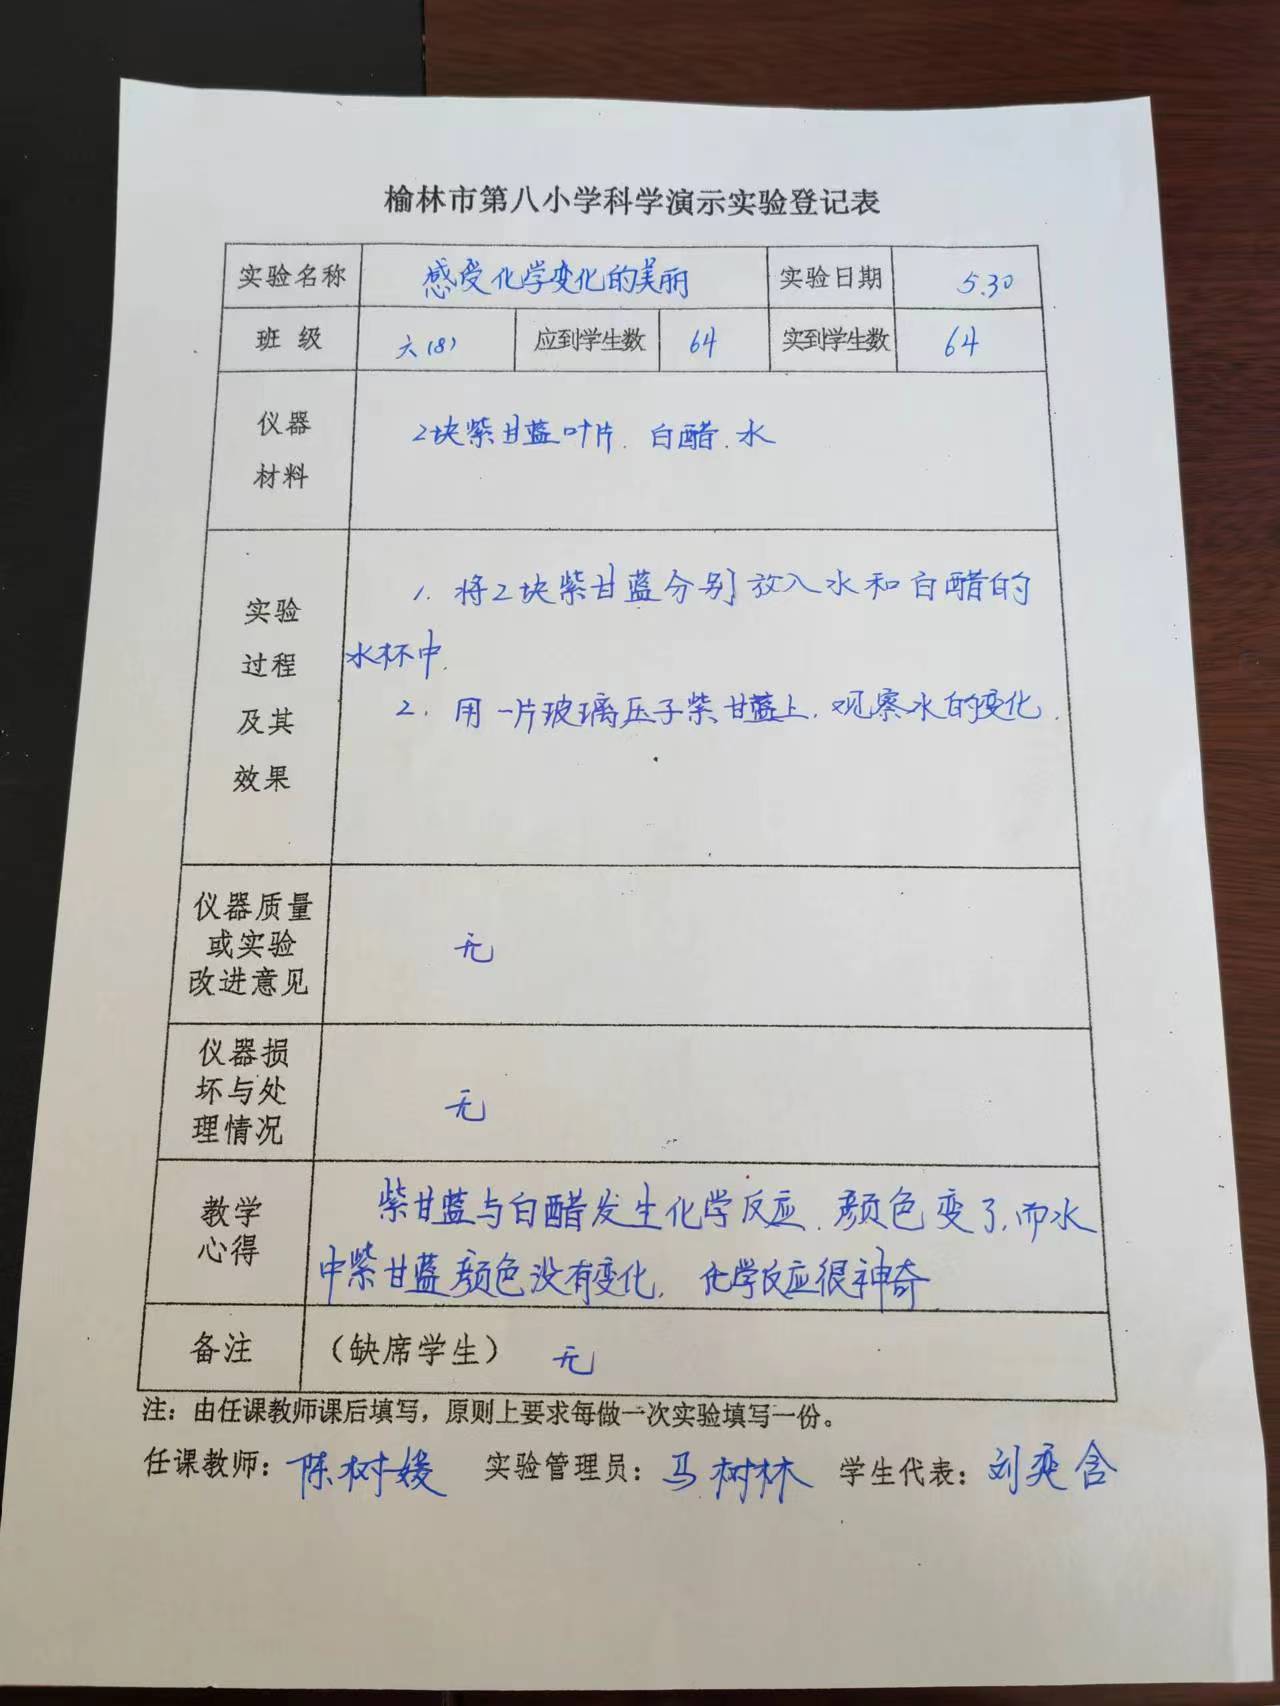 榆林市第八小学科学演示实验登记表
实验名称 感受化学变化的美丽 实验日期 5.30
班 级 六(8) 应到学生数 64 实到学生数 64
仪器
材料
2块紫甘蓝叶片、白醋、水
实验
过程
及其
效果
1. 将2块紫甘蓝分别放入水和白醋的
水杯中.
2. 用一片玻璃压子紫甘蓝上,观察水的变化.
仪器质量
或实验
改进意见
无
仪器损
坏与处
理情况
无
教学
心得
紫甘蓝与白醋发生化学反应、颜色变了,而水
中紫甘蓝颜色没有变化, 化学反应很神奇
备注 (缺席学生) 无
注：由任课教师课后填写，原则上要求每做一次实验填写一份。
任课教师：陈树媛 实验管理员：马树林 学生代表：刘奕含